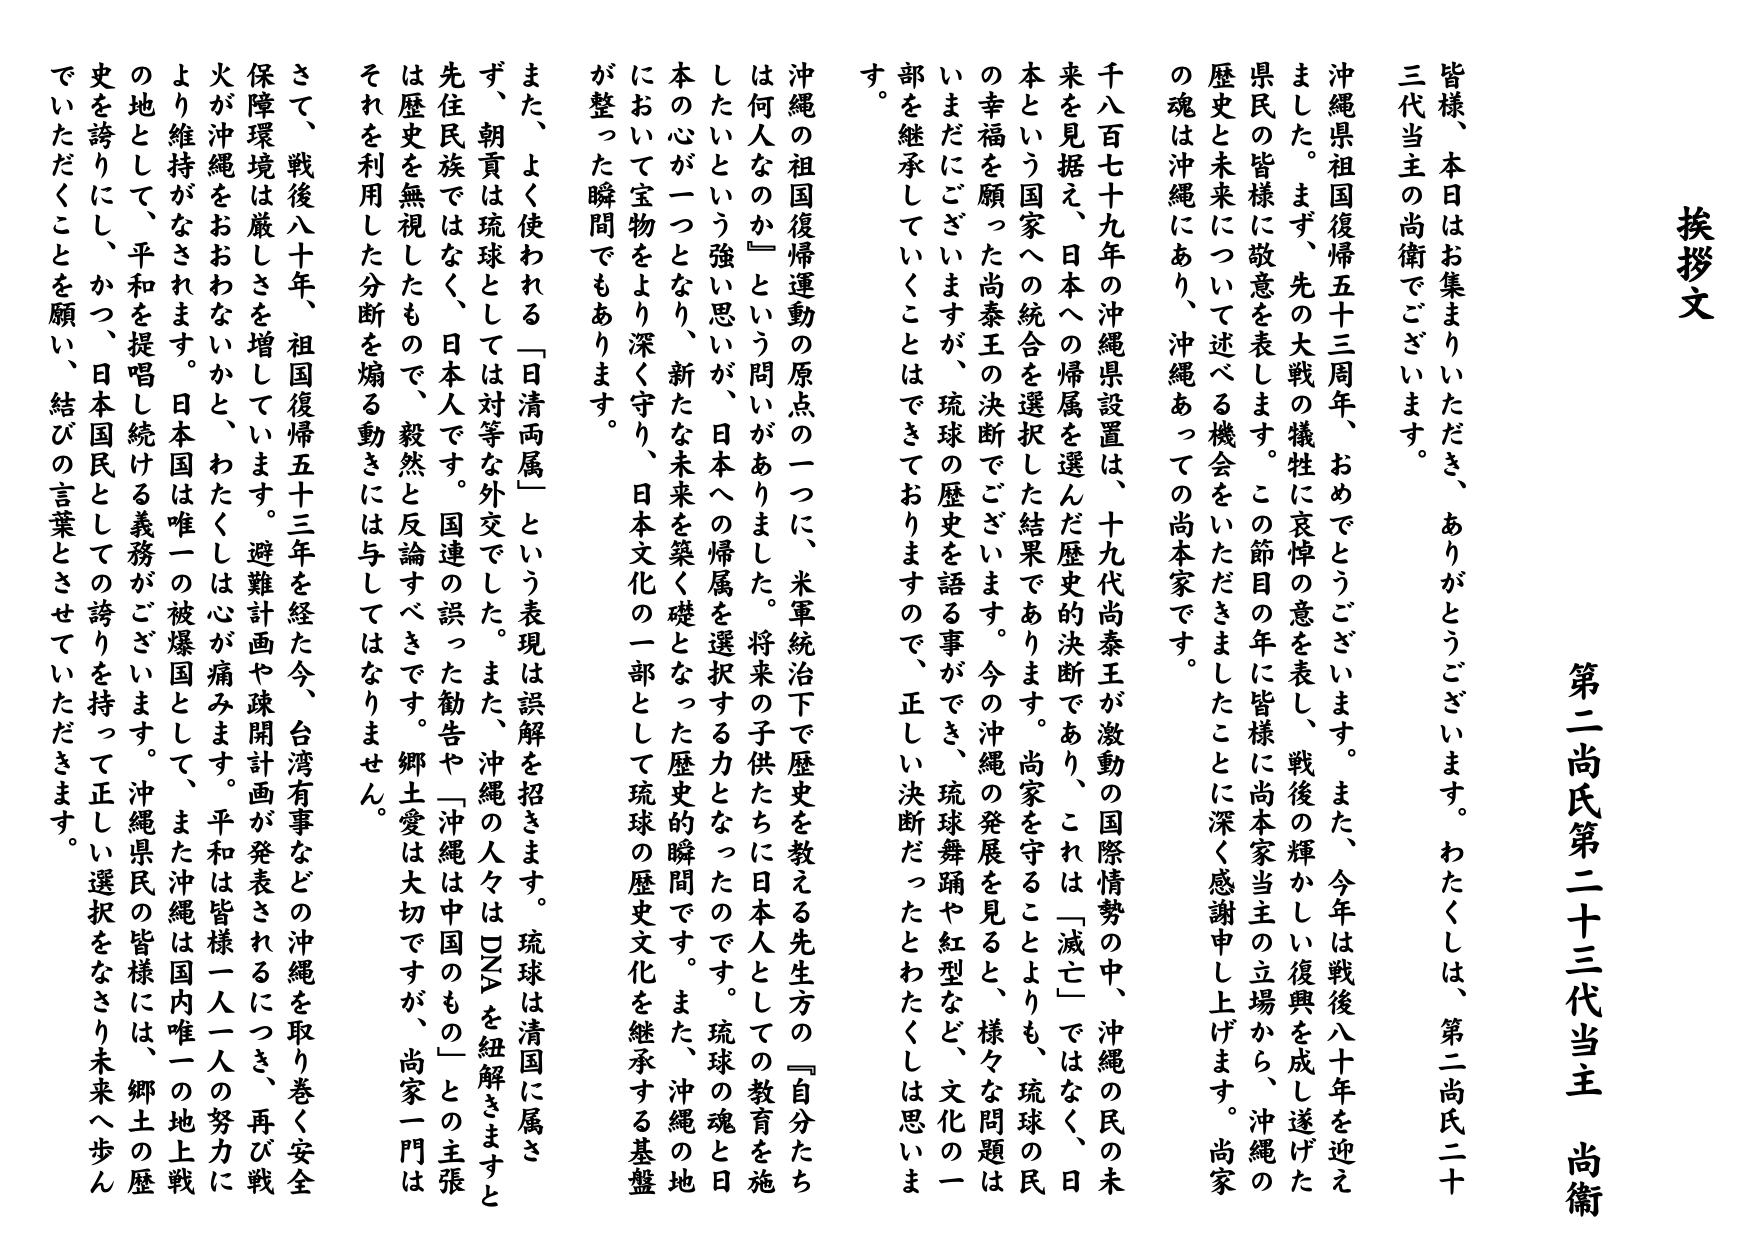 挨拶文
第二尚氏第二十三代当主　尚衞
皆様、本日はお集まりいただき、ありがとうございます。わたくしは、第二尚氏二十
三代当主の尚衞でございます。
沖縄県祖国復帰五十三周年、おめでとうございます。また、今年は戦後八十年を迎え
ました。まず、先の大戦の犠牲に哀悼の意を表し、戦後の輝かしい復興を成し遂げた
県民の皆様に敬意を表します。この節目の年に皆様に尚本家当主の立場から、沖縄の
歴史と未来について述べる機会をいただきましたことに深く感謝申し上げます。尚家
の魂は沖縄にあり、沖縄あっての尚本家です。
千八百七十九年の沖縄県設置は、十九代尚泰王が激動の国際情勢の中、沖縄の民の未
来を見据え、日本への帰属を選んだ歴史的決断であり、これは「滅亡」ではなく、日
本という国家への統合を選択した結果であります。尚家を守ることよりも、琉球の民
の幸福を願った尚泰王の決断でございます。今の沖縄の発展を見ると、様々な問題は
いまだにございますが、琉球の歴史を語る事ができ、琉球舞踊や紅型など、文化の一
部を継承していくことはできておりますので、正しい決断だったとわたくしは思いま
す。
沖縄の祖国復帰運動の原点の一つに、米軍統治下で歴史を教える先生方の『自分たち
は何人なのか』という問いがありました。将来の子供たちに日本人としての教育を施
したいという強い思いが、日本への帰属を選択する力となったのです。琉球の魂と日
本の心が一つとなり、新たな未来を築く礎となった歴史的瞬間です。また、沖縄の地
において宝物をより深く守り、日本文化の一部として琉球の歴史文化を継承する基盤
が整った瞬間でもあります。
また、よく使われる「日清両属」という表現は誤解を招きます。琉球は清国に属さ
ず、朝貢は琉球としては対等な外交でした。また、沖縄の人々は DNA を紐解きますと
先住民族ではなく、日本人です。国連の誤った勧告や「沖縄は中国のもの」との主張
は歴史を無視したもので、毅然と反論すべきです。郷土愛は大切ですが、尚家一門は
それを利用した分断を煽る動きには与してはなりません。
さて、戦後八十年、祖国復帰五十三年を経た今、台湾有事などの沖縄を取り巻く安全
保障環境は厳しさを増しています。避難計画や疎開計画が発表されるにつき、再び戦
火が沖縄をおおわないかと、わたくしは心が痛みます。平和は皆様一人一人の努力に
より維持がなされます。日本国は唯一の被爆国として、また沖縄は国内唯一の地上戦
の地として、平和を提唱し続ける義務がございます。沖縄県民の皆様には、郷土の歴
史を誇りにし、かつ、日本国民としての誇りを持って正しい選択をなさり未来へ歩ん
でいただくことを願い、結びの言葉とさせていただきます。